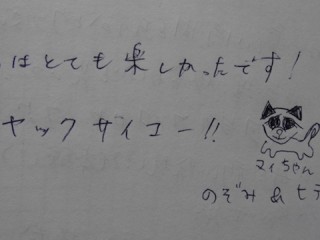 はとても楽しかったです!
ヤック ザイコー!!
マイちゃん
のぞみ & ヒデ